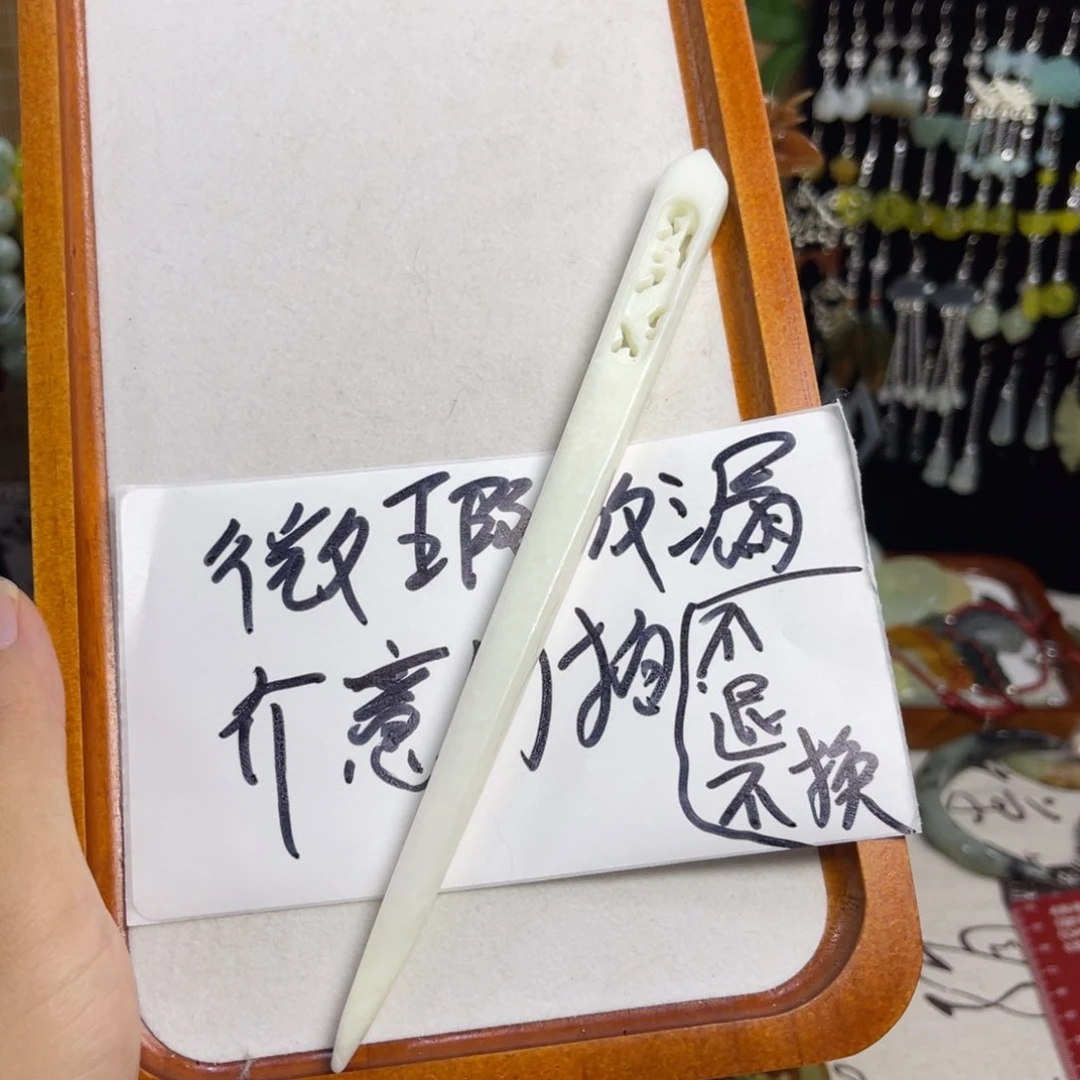 微瑕放漏
介意勿拍
不退不换